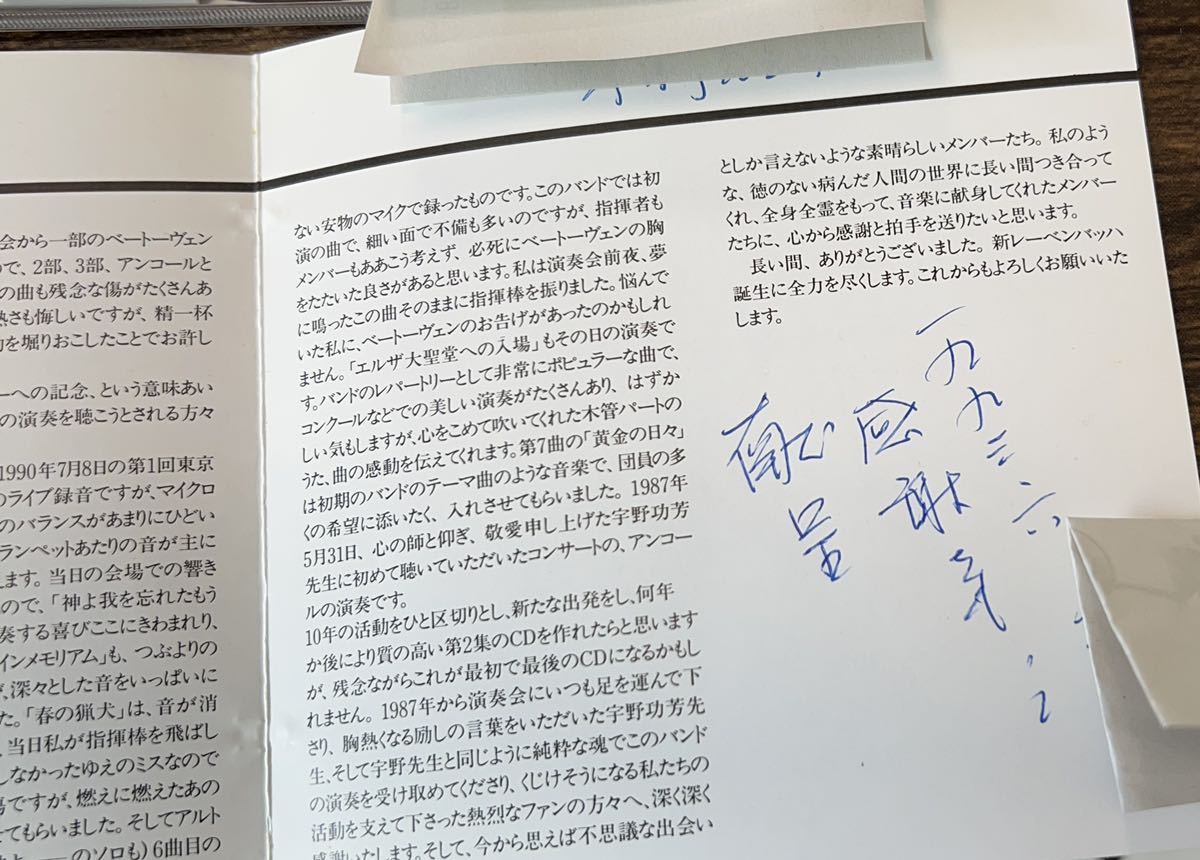 会から一部のベートーヴェン
ので、2部、3部、アンコールと
の曲も残念な傷がたくさんあ
熱さも悔しいですが、精一杯
を堀りおこしたことでお許し
ーへの記念、という意味あい
の演奏を聴こうとされる方々
1990年7月8日の第1回東京
のライブ録音ですが、マイクロ
のバランスがあまりにひどい
ランペットあたりの音が主に
えます。当日の会場での響き
ので、「神よ我を忘れたもう
奏する喜びここにきわまれり、
インメモリアム」も、つぶよりの
、深々とした音をいっぱいに
た。「春の猟犬」は、音が消
当日私が指揮棒を飛ばし
しなかったゆえのミスなので
傷ですが、燃えに燃えたあの
せてもらいました。そしてアルト
のソロも）6曲目の
ない安物のマイクで録ったものです。このバンドでは初
演の曲で、細い面で不備も多いのですが、指揮者も
メンバーもああこう考えず、必死にベートーヴェンの胸
をたたいた良さがあると思います。私は演奏会前夜、夢
に鳴ったこの曲そのままに指揮棒を振りました。悩んで
いた私に、ベートーヴェンのお告げがあったのかもしれ
ません。「エルザ大聖堂への入場」もその日の演奏で
す。バンドのレパートリーとして非常にポピュラーな曲で、
コンクールなどでの美しい演奏がたくさんあり、はずか
しい気もしますが、心をこめて吹いてくれた木管パートの
うた、曲の感動を伝えてくれます。第7曲の「黄金の日々」
は初期のバンドのテーマ曲のような音楽で、団員の多
くの希望に添いたく、入れさせてもらいました。1987年
5月31日、心の師と仰ぎ、敬愛申し上げた宇野功芳
先生に初めて聴いていただいたコンサートの、アンコー
ルの演奏です。
10年の活動をひと区切りとし、新たな出発をし、何年
か後により質の高い第2集のCDを作れたらと思います
が、残念ながらこれが最初で最後のCDになるかもし
れません。1987年から演奏会にいつも足を運んで下
さり、胸熱くなる励しの言葉をいただいた宇野功芳先
生、そして宇野先生と同じように純粋な魂でこのバンド
の演奏を受け取めてくださり、くじけそうになる私たちの
活動を支えて下さった熱烈なファンの方々へ、深く深く
感謝いたします。そして、今から思えば不思議な出会い
としか言えないような素晴らしいメンバーたち。私のよう
な、徳のない病んだ人間の世界に長い間つき合って
くれ、全身全霊をもって、音楽に献身してくれたメンバー
たちに、心から感謝と拍手を送りたいと思います。
長い間、ありがとうございました。新レーベンバッハ
誕生に全力を尽くします。これからもよろしくお願いいた
します。
一九九三、六、
感謝
献呈